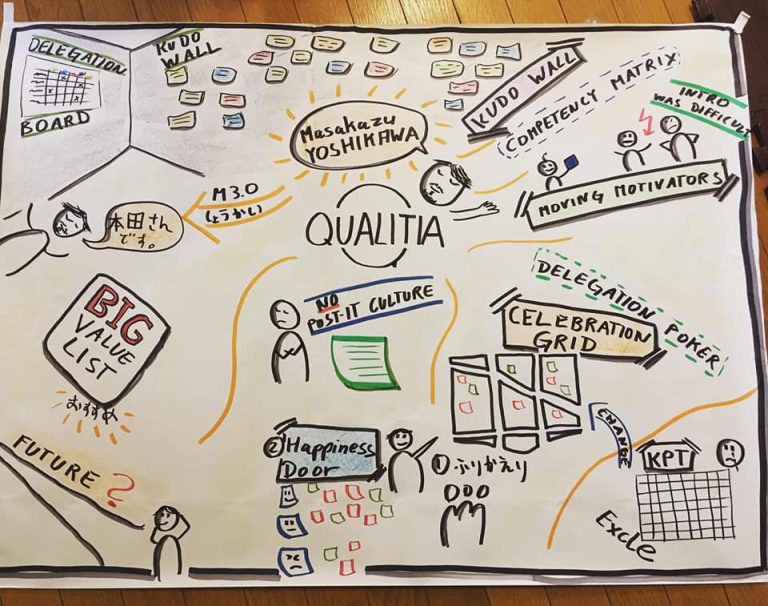 DELEGATION
BOARD
KUDO
WALL
Masakazu
YOSHIKAWA
KUDO WALL
COMPETENCY MATRIX
INTRO
WAS DIFFICULT
MOVING MOTIVATORS
M3.0
しょうかい
本田さん
です。
QUALITIA
BIG
VALUE
LIST
おすすめ
NO
POST-IT CULTURE
DELEGATION POKER
CELEBRATION
GRID
CHANGE
② Happiness
Door
① ふりかえり
KPT
Excle
FUTURE?